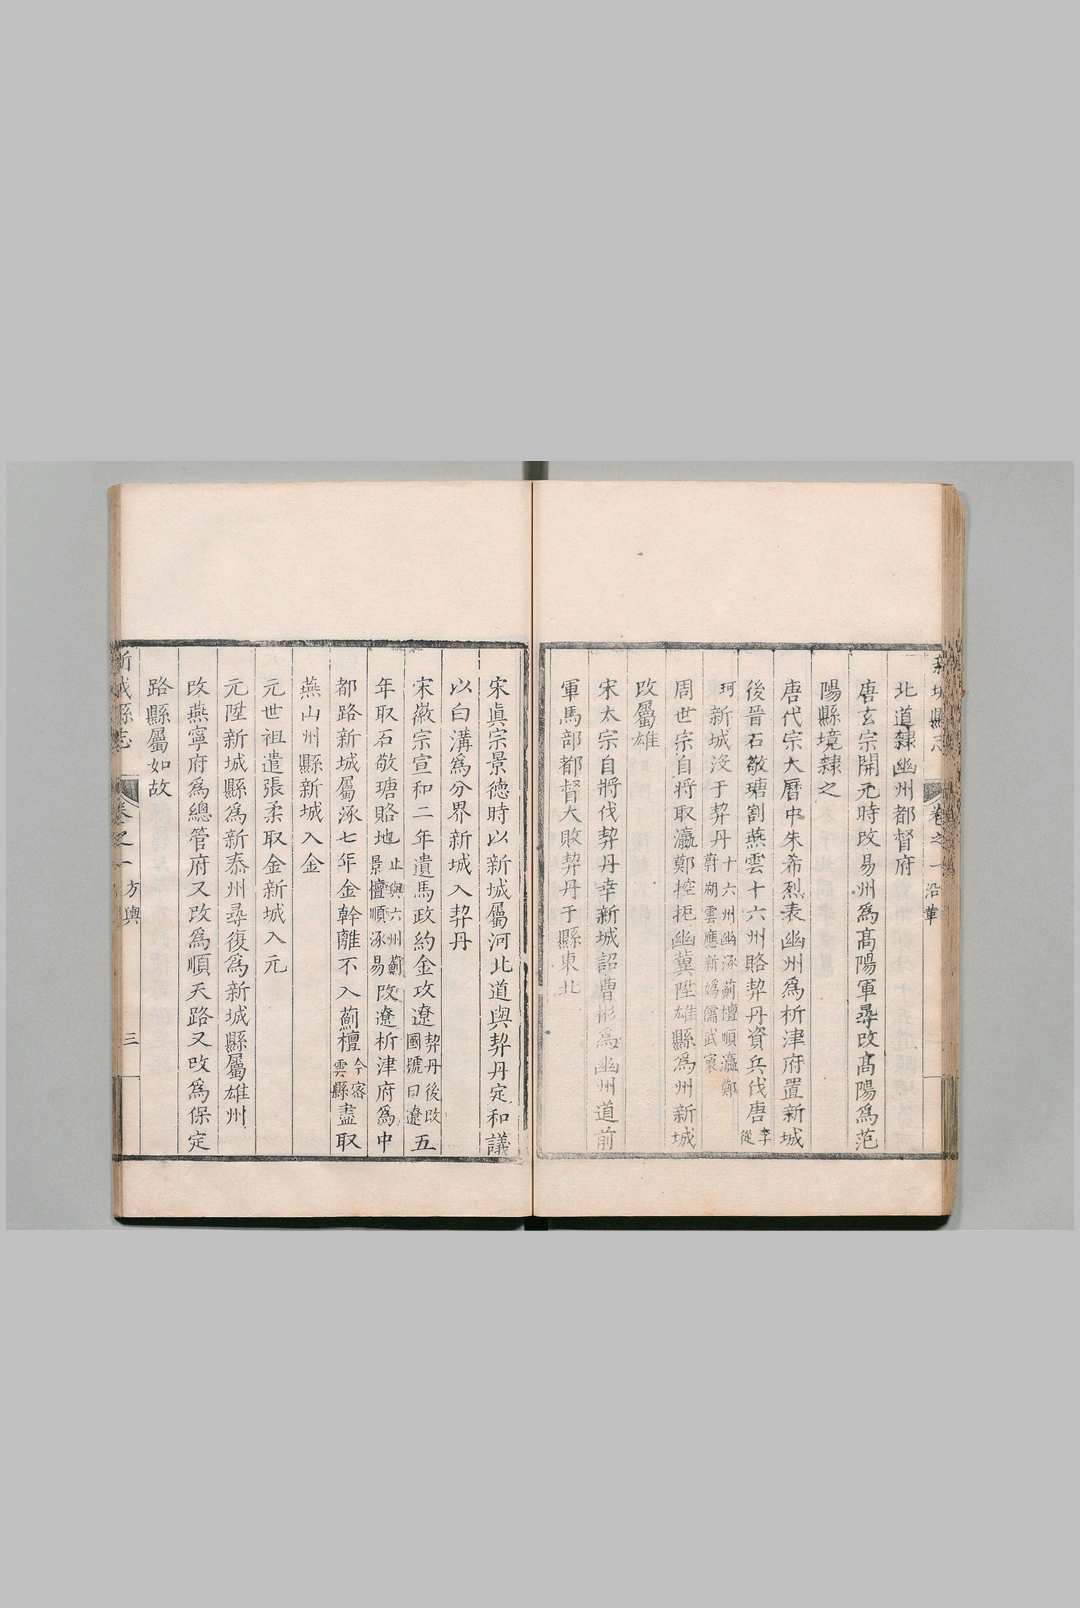 新城縣志 卷之一 沿革
北道隸幽州都督府
唐玄宗開元時改易州為高陽軍尋改高陽為范
陽縣境隸之
唐代宗大曆中朱希烈表幽州為析津府置新城
後晉石敬瑭割燕雲十六州賂契丹資兵伐唐李從
珂新城沒于契丹十六州幽涿薊檀順瀛鄚蔚朔雲應新媯儒武寰
周世宗自將取瀛鄚控扼幽冀陞雄縣為州新城
改屬雄
宋太宗自將伐契丹幸新城詔曹彬為幽州道前
軍馬部都督大敗契丹于縣東北
宋眞宗景德時以新城屬河北道與契丹定和議
以白溝為分界新城入契丹
宋徽宗宣和二年遺馬政約金攻遼契丹後改國號曰遼五
年取石敬瑭賂地止與六州薊景檀順涿易改遼析津府為中
都路新城屬涿七年金幹離不入薊檀今密雲縣盡取
燕山州縣新城入金
元世祖遣張柔取金新城入元
元陞新城縣為新泰州尋復為新城縣屬雄州
改燕寧府為總管府又改為順天路又改為保定
路縣屬如故
新城縣志 卷之一 方輿 三